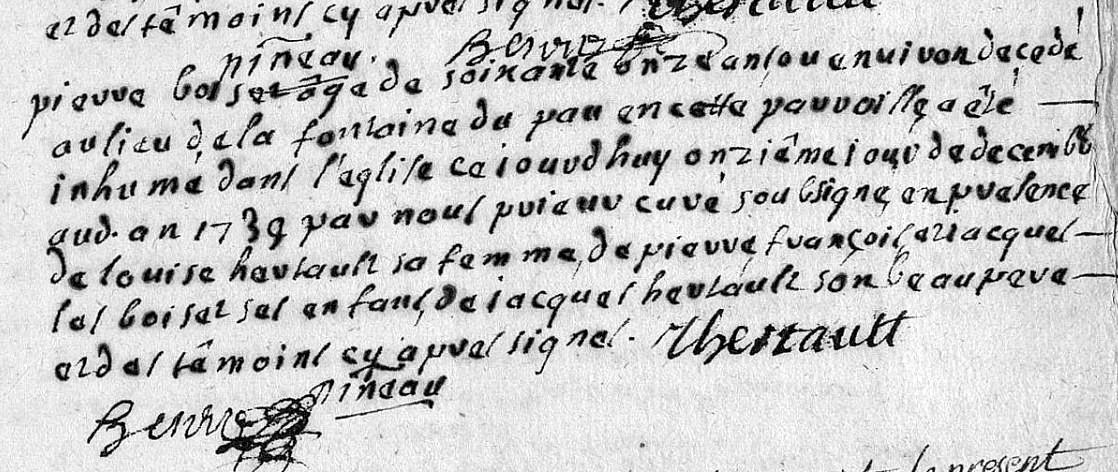 et des tâmoins cy apres signes.
pineau.
pierre boiset agé de soixante onze ans ou enuiron decedé
au lieu de la fontaine du pau en cette parroisse a été
inhumé dans l'eglise ce iourdhuy onziême iour de decembre
aud. an 1739 par nous prieur curé soubsigné en presence
de louise hertault sa femme, de pierre françois et iacques
les boiset ses enfans, de iacques hertault son beaupere
et des tâmoins cy apres signes. Jhertault
pineau
present